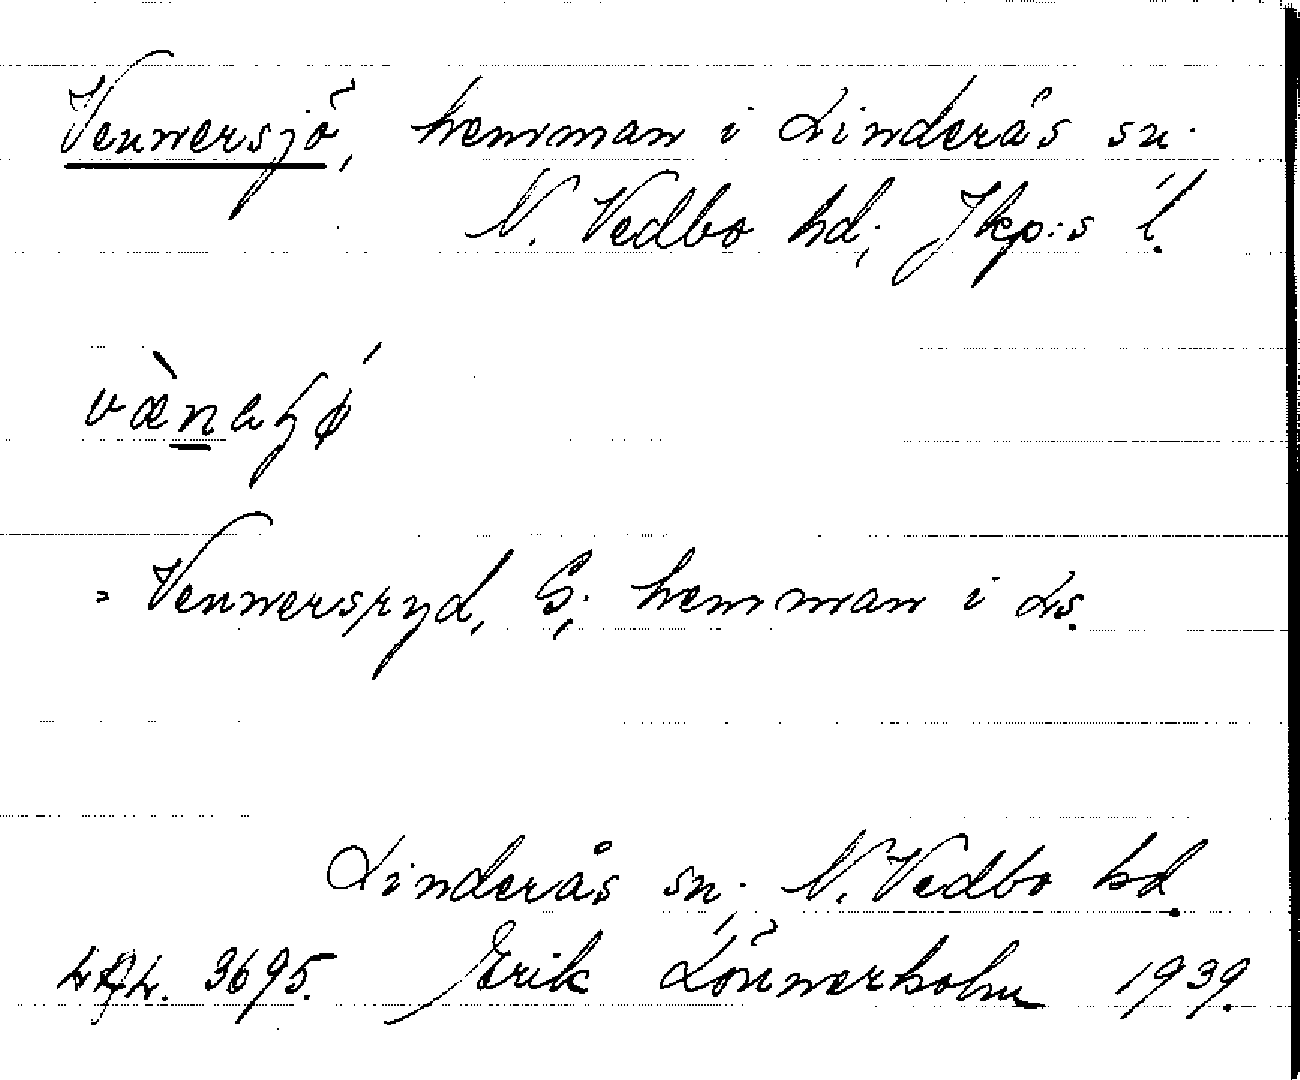 Vennersjö, hemman i Linderås sn.
N. Vedbo hd; Jkp:s l.
= Vennersryd, S; hemman i Ls.
Linderås sn; N. Vedbo hd.
3695. Erik Lönnerholm 1939.